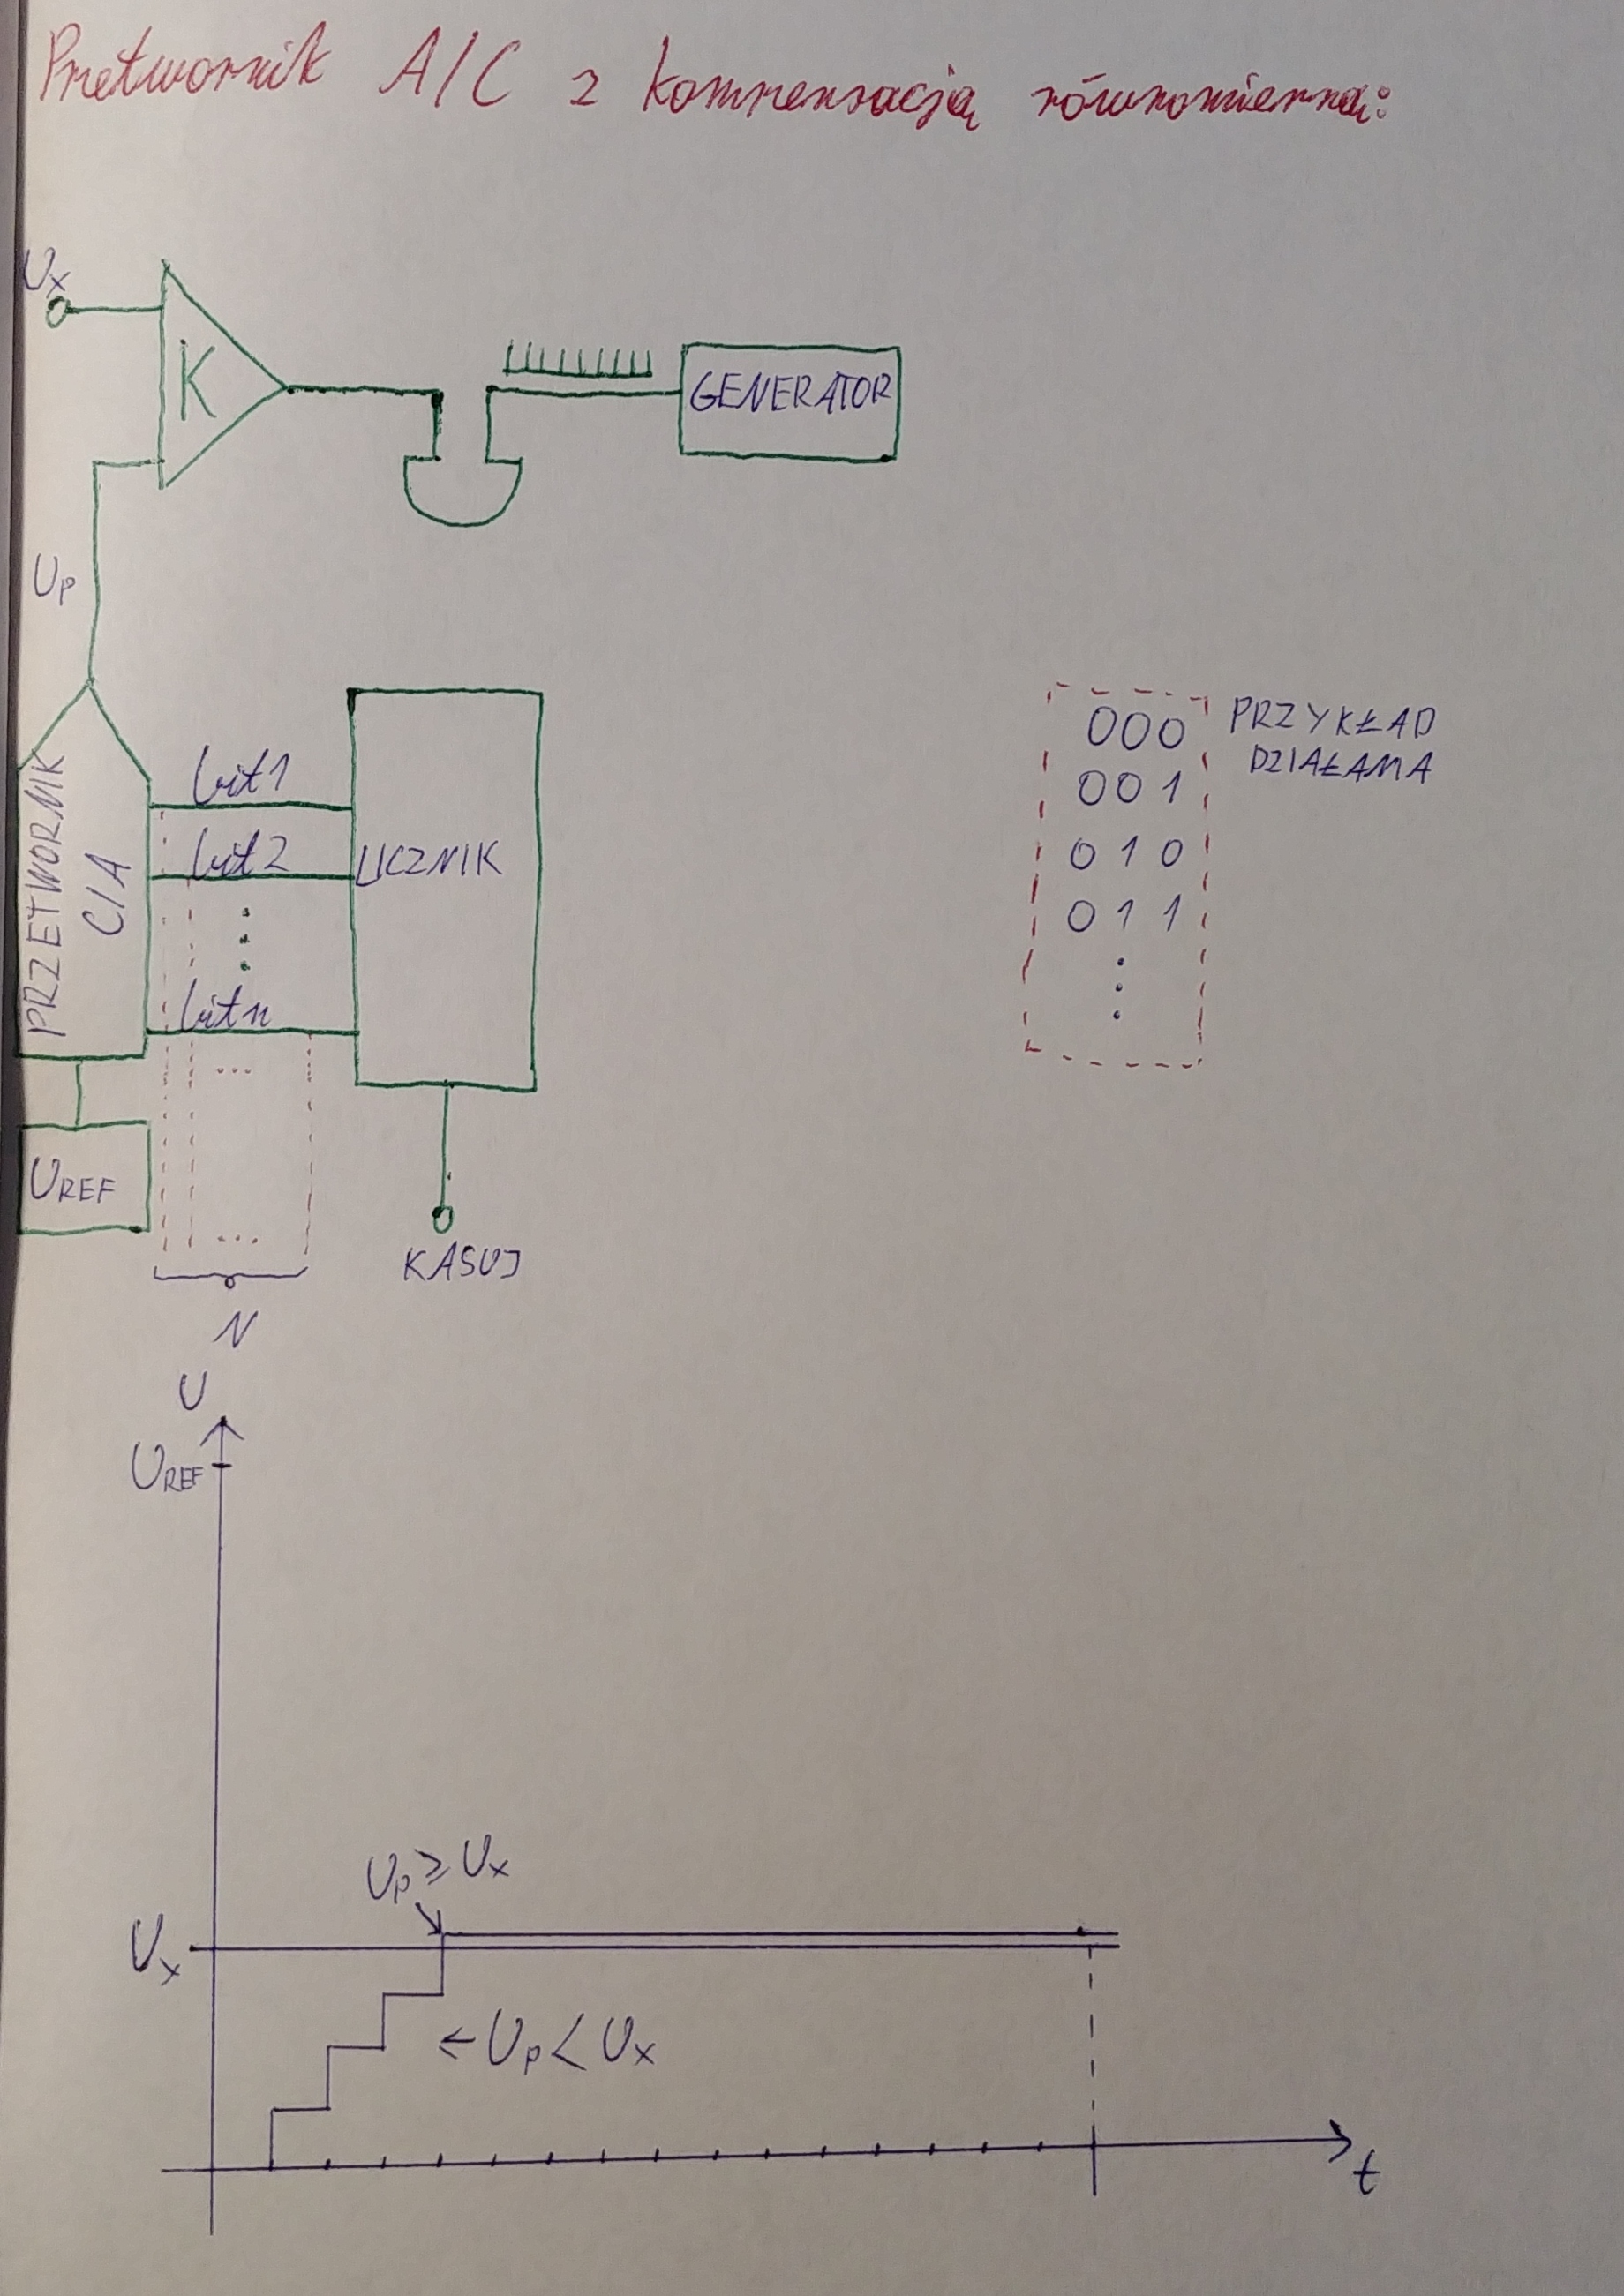 Przetwornik A/C z kompensacją równomierną:
Ux
K
GENERATOR
Up
PRZETWORNIK
C/A
bit1
bit2
bitn
LICZNIK
000
001
010
011
PRZYKŁAD
DZIAŁANIA
UREF
...
...
KASUJ
N
U
UREF
Up ≥ Ux
Ux
← Up < Ux
t